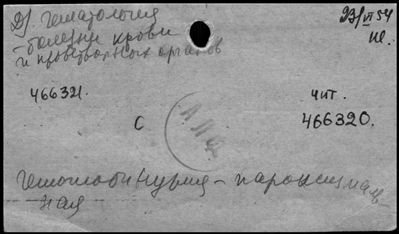 Д/ гематология
- болезни крови
и кроветворных органов
23/VI 54
466321.
чит.
С
466320.
гемоглобинурия - пароксизмаль-
ная